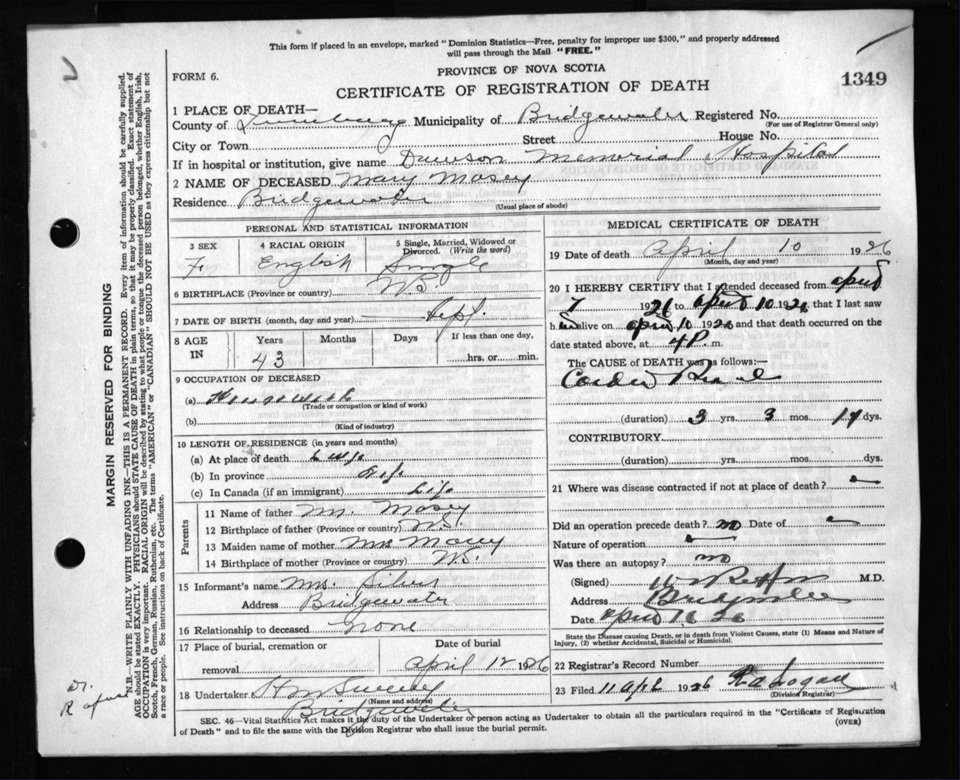 This form if placed in an envelope, marked "Dominion Statistics—Free, penalty for improper use $300," and properly addressed
will pass through the Mail "FREE."
PROVINCE OF NOVA SCOTIA
FORM 6.
CERTIFICATE OF REGISTRATION OF DEATH
1349
1 PLACE OF DEATH—
County of Lunenburg Municipality of Bridgewater Registered No.
(For use of Registrar General only)
City or Town Street House No.
If in hospital or institution, give name Dawson Memorial Hospital
2 NAME OF DECEASED Mary Mosey
Residence Bridgewater
(Usual place of abode)
PERSONAL AND STATISTICAL INFORMATION
3 SEX 4 RACIAL ORIGIN 5 Single, Married, Widowed or
Divorced. (Write the word)
F. English Single
6 BIRTHPLACE (Province or country) N.S.
7 DATE OF BIRTH (month, day and year) Sept.
8 AGE IN Years Months Days If less than one day,
43 hrs. or min.
9 OCCUPATION OF DECEASED
(a) Housework
(Trade or occupation or kind of work)
(b)
(Kind of industry)
10 LENGTH OF RESIDENCE (in years and months)
(a) At place of death
(b) In province Life
(c) In Canada (if an immigrant) Life
Parents
11 Name of father Mr. Mosey
12 Birthplace of father (Province or country) N.S.
13 Maiden name of mother Mrs Mosey
14 Birthplace of mother (Province or country) N.S.
15 Informant's name Mrs. Silver
Address Bridgewater
16 Relationship to deceased None
17 Place of burial, cremation or Date of burial
removal April 12 1926
18 Undertaker
(Name and address)
Bridgewater
MEDICAL CERTIFICATE OF DEATH
19 Date of death April 10 1926
(Month, day and year)
20 I HEREBY CERTIFY that I attended deceased from April
7 1926 to April 10 1926, that I last saw
h alive on April 10 1926 and that death occurred on the
date stated above, at 4 P. m.
The CAUSE of DEATH was as follows:—
(duration) 3 yrs. 3 mos. 14 dys.
CONTRIBUTORY.
(duration) yrs. mos. dys.
21 Where was disease contracted if not at place of death?
Did an operation precede death? no Date of
Nature of operation
Was there an autopsy? no
(Signed) M.D.
Address Bridgewater
Date April 26
State the Disease causing Death, or in death from Violent Causes, state (1) Means and Nature of
Injury, (2) whether Accidental, Suicidal or Homicidal.
22 Registrar's Record Number
23 Filed 11 Apl 1926
(Division Registrar)
SEC. 46—Vital Statistics Act makes it the duty of the Undertaker or person acting as Undertaker to obtain all the particulars required in the "Certificate of Registration
of Death" and to file the same with the Division Registrar who shall issue the burial permit. (OVER)
MARGIN RESERVED FOR BINDING
N.B.—WRITE PLAINLY WITH UNFADING INK—THIS IS A PERMANENT RECORD. Every item of information should be carefully supplied.
AGE should be stated EXACTLY. PHYSICIANS should STATE CAUSE OF DEATH in plain terms, so that it may be properly classified. Exact statement of
OCCUPATION is very important. RACIAL ORIGIN will be described by stating to what people or tongue the deceased person belonged, whether English, Irish,
Scotch, French, German, Russian, Ruthenian, etc. The terms "AMERICAN" or "CANADIAN" SHOULD NOT BE USED as they express citizenship but not
a race or people. See instructions on back of Certificate.
Dr.